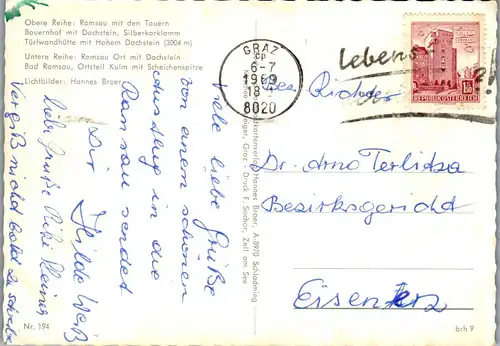 Obere Reihe: Ramsau mit den Tauern
Bauernhof mit Dachstein, Silberkarklamm
Türlwandhütte mit Hohem Dachstein (3004 m)
Untere Reihe: Ramsau Ort mit Dachstein
Bad Ramsau, Ortsteil Kulm mit Scheichenspitze
Lichtbilder: Hannes Braer
Viele liebe Grüße
von einem schönen
Ausflug in die
Ramsau sendet
Dir Hilde Weiß
liebe Grüße
Vergiß nicht bald zu schreiben
Nr. 194
Kartenverlag Hannes Braer, A-8970 Schladming
Graz - Druck F. Sochor, Zell am See
GRAZ
6-7
1969
18
8020
Lebens
?!
1.50
REPUBLIK ÖSTERREICH
Richter
Dr. Arno Terlitza
Bezirksgericht
Eisenerz
brh 9